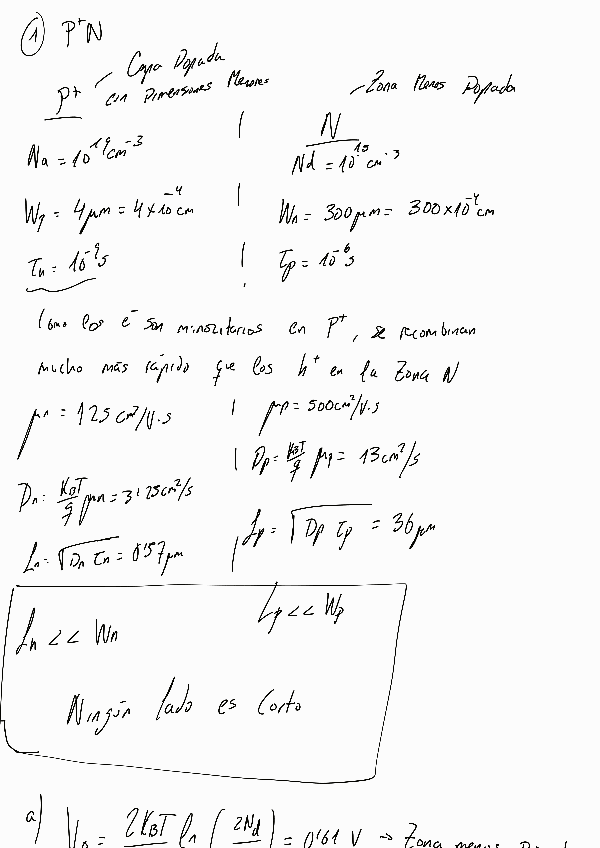 ① P⁺N
Capa Dopada
con Dimensiones Menores
Zona Menos Dopada
P⁺ | N
Na = 10¹⁹ cm⁻³ Nd = 10¹⁵ cm⁻³
Wp = 4 μm = 4×10⁻⁴ cm | Wn = 300 μm = 300×10⁻⁴ cm
τn = 10⁻⁹ s | τp = 10⁻⁶ s
Como los e⁻ son minoritarios en P⁺, se recombinan
mucho más rápido que los h⁺ en la Zona N
μn = 125 cm²/V·s | μp = 500 cm²/V·s
| Dp = KBT/q μp = 13 cm²/s
Dn = KBT/q μn = 3'25 cm²/s
Lp = √(Dp τp) = 36 μm
Ln = √(Dn τn) = 0'57 μm |
Lp << Wp
Ln << Wn
Ningún lado es Corto
a) = 2KBT ln ( 2Nd ) = 0'61 V → Zona menos